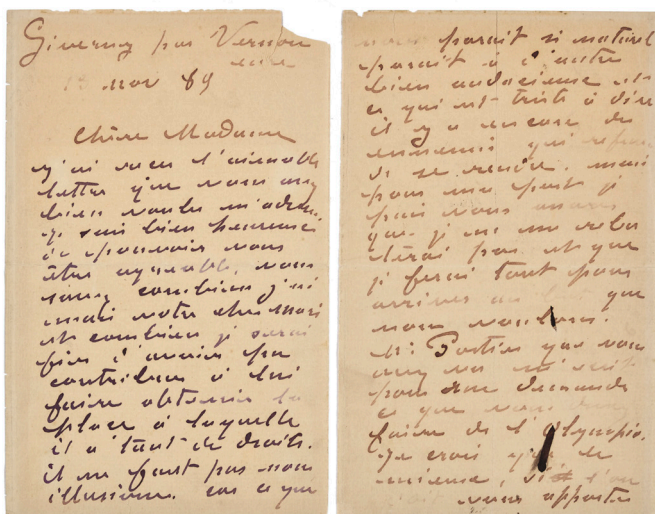 Giverny par Vernon
eure
nov 89
Chère Madame
j'ai reçu l'aimable
lettre que vous avez
bien voulu m'adresser
je suis bien heureux
de pouvoir vous
être agréable, vous
savez combien j'ai
mais votre cher mari
et combien je serai
fier d'avoir pu
contribuer à lui
faire obtenir la
place à laquelle
il a tant de droits.
il ne faut pas nous
illusionner. car ce qui
nous parait si naturel
parait à d'autre
bien audacieuse et
ce qui est triste à dire
il y a encore de
ennemis qui refusent
de se rendre. mais
pour ma part je
puis vous
que je ne me rebu
terai pas et que
je ferai tout pour
arriver au but que
nous voulons.
M. Portier que vous
avez vu m'écrit
pour me demander
ce que nous
faire de l'Olympia.
Je crois que le
mieux, si l'on
vous apporter